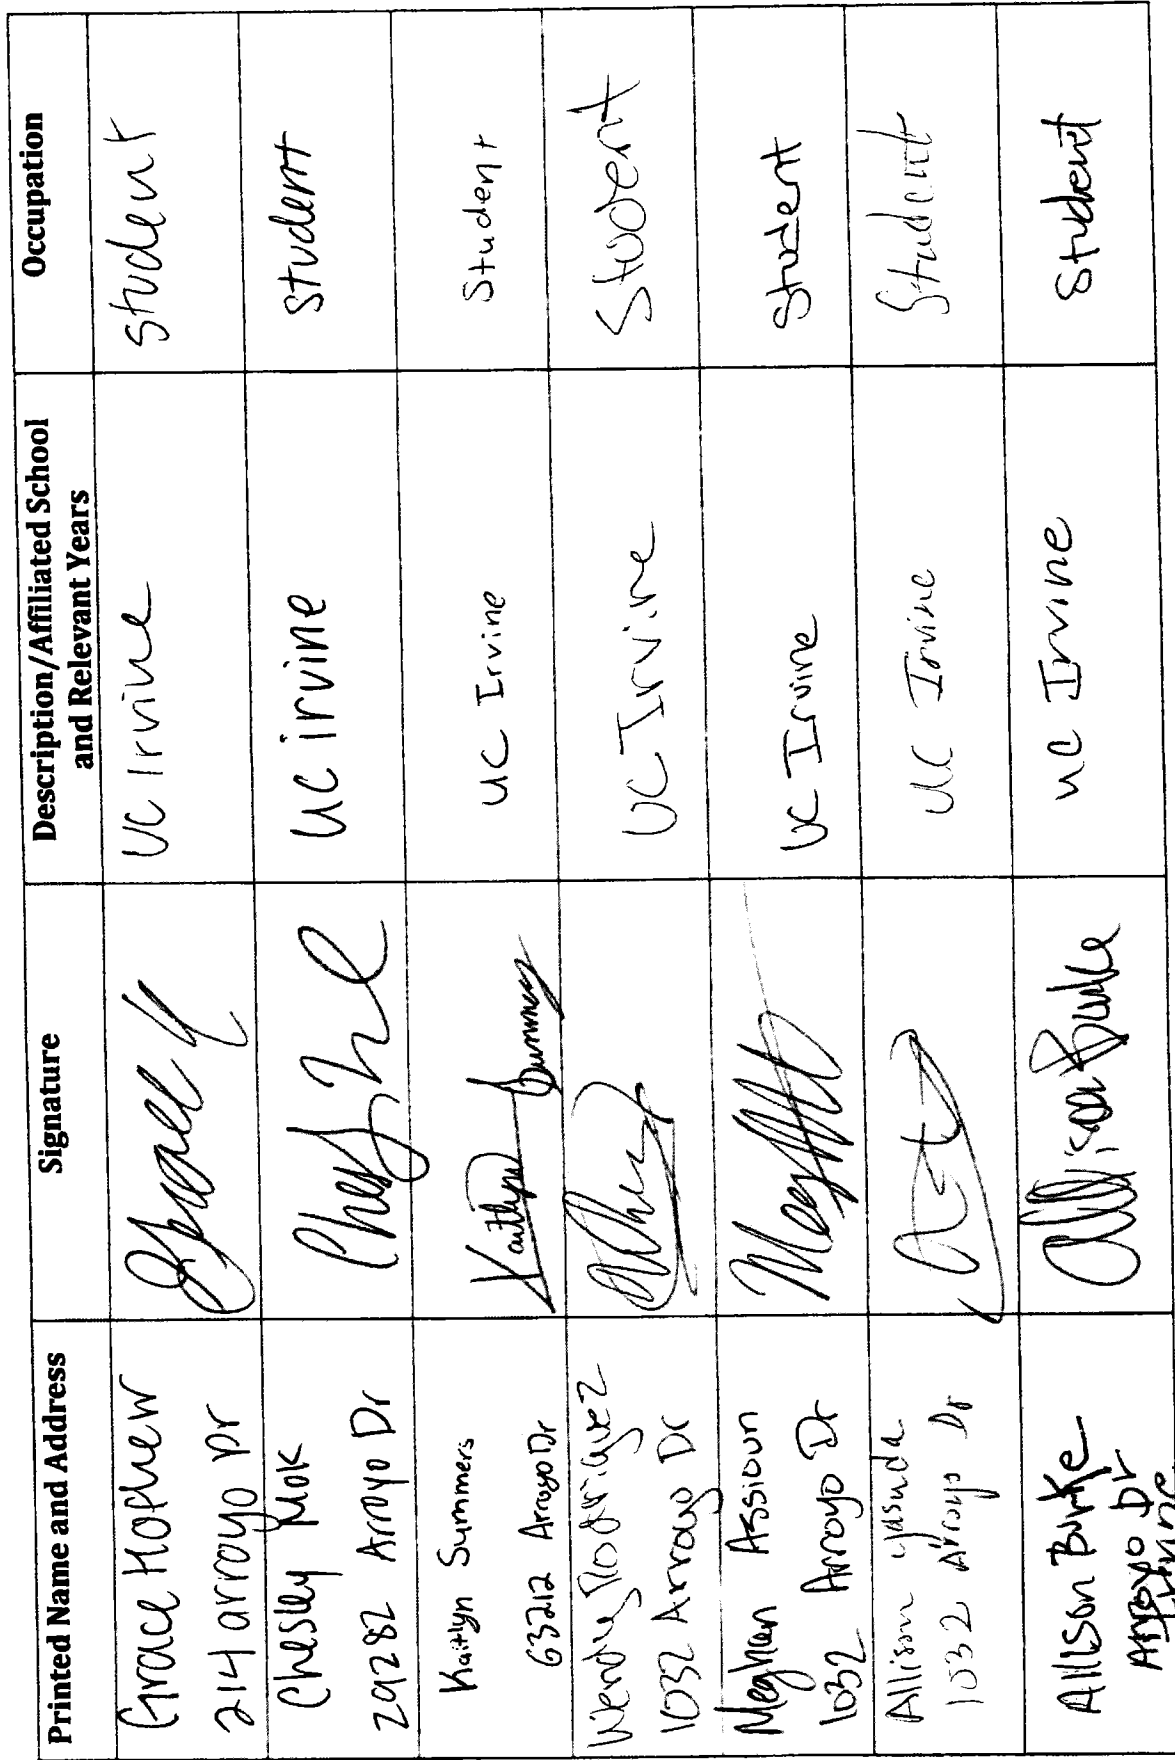 Printed Name and Address
Signature
Description/Affiliated School
and Relevant Years
Occupation
Grace Hofhew
214 arroyo Dr
UC Irvine
student
Chesley Mok
29282 Arroyo Dr
UC irvine
student
Kaitlyn Summers
63212 Arroyo Dr
Kaitlyn Summers
UC Irvine
Student
Wendy Rodriguez
1032 Arroyo Dr
UC Irvine
Student
Meghan Assioun
1032 Arroyo Dr
UC Irvine
Student
Allison Yasuda
1032 Arroyo Dr
UC Irvine
Student
Allison Burke
Arroyo Dr
Irvine
Allison Burke
UC Irvine
Student